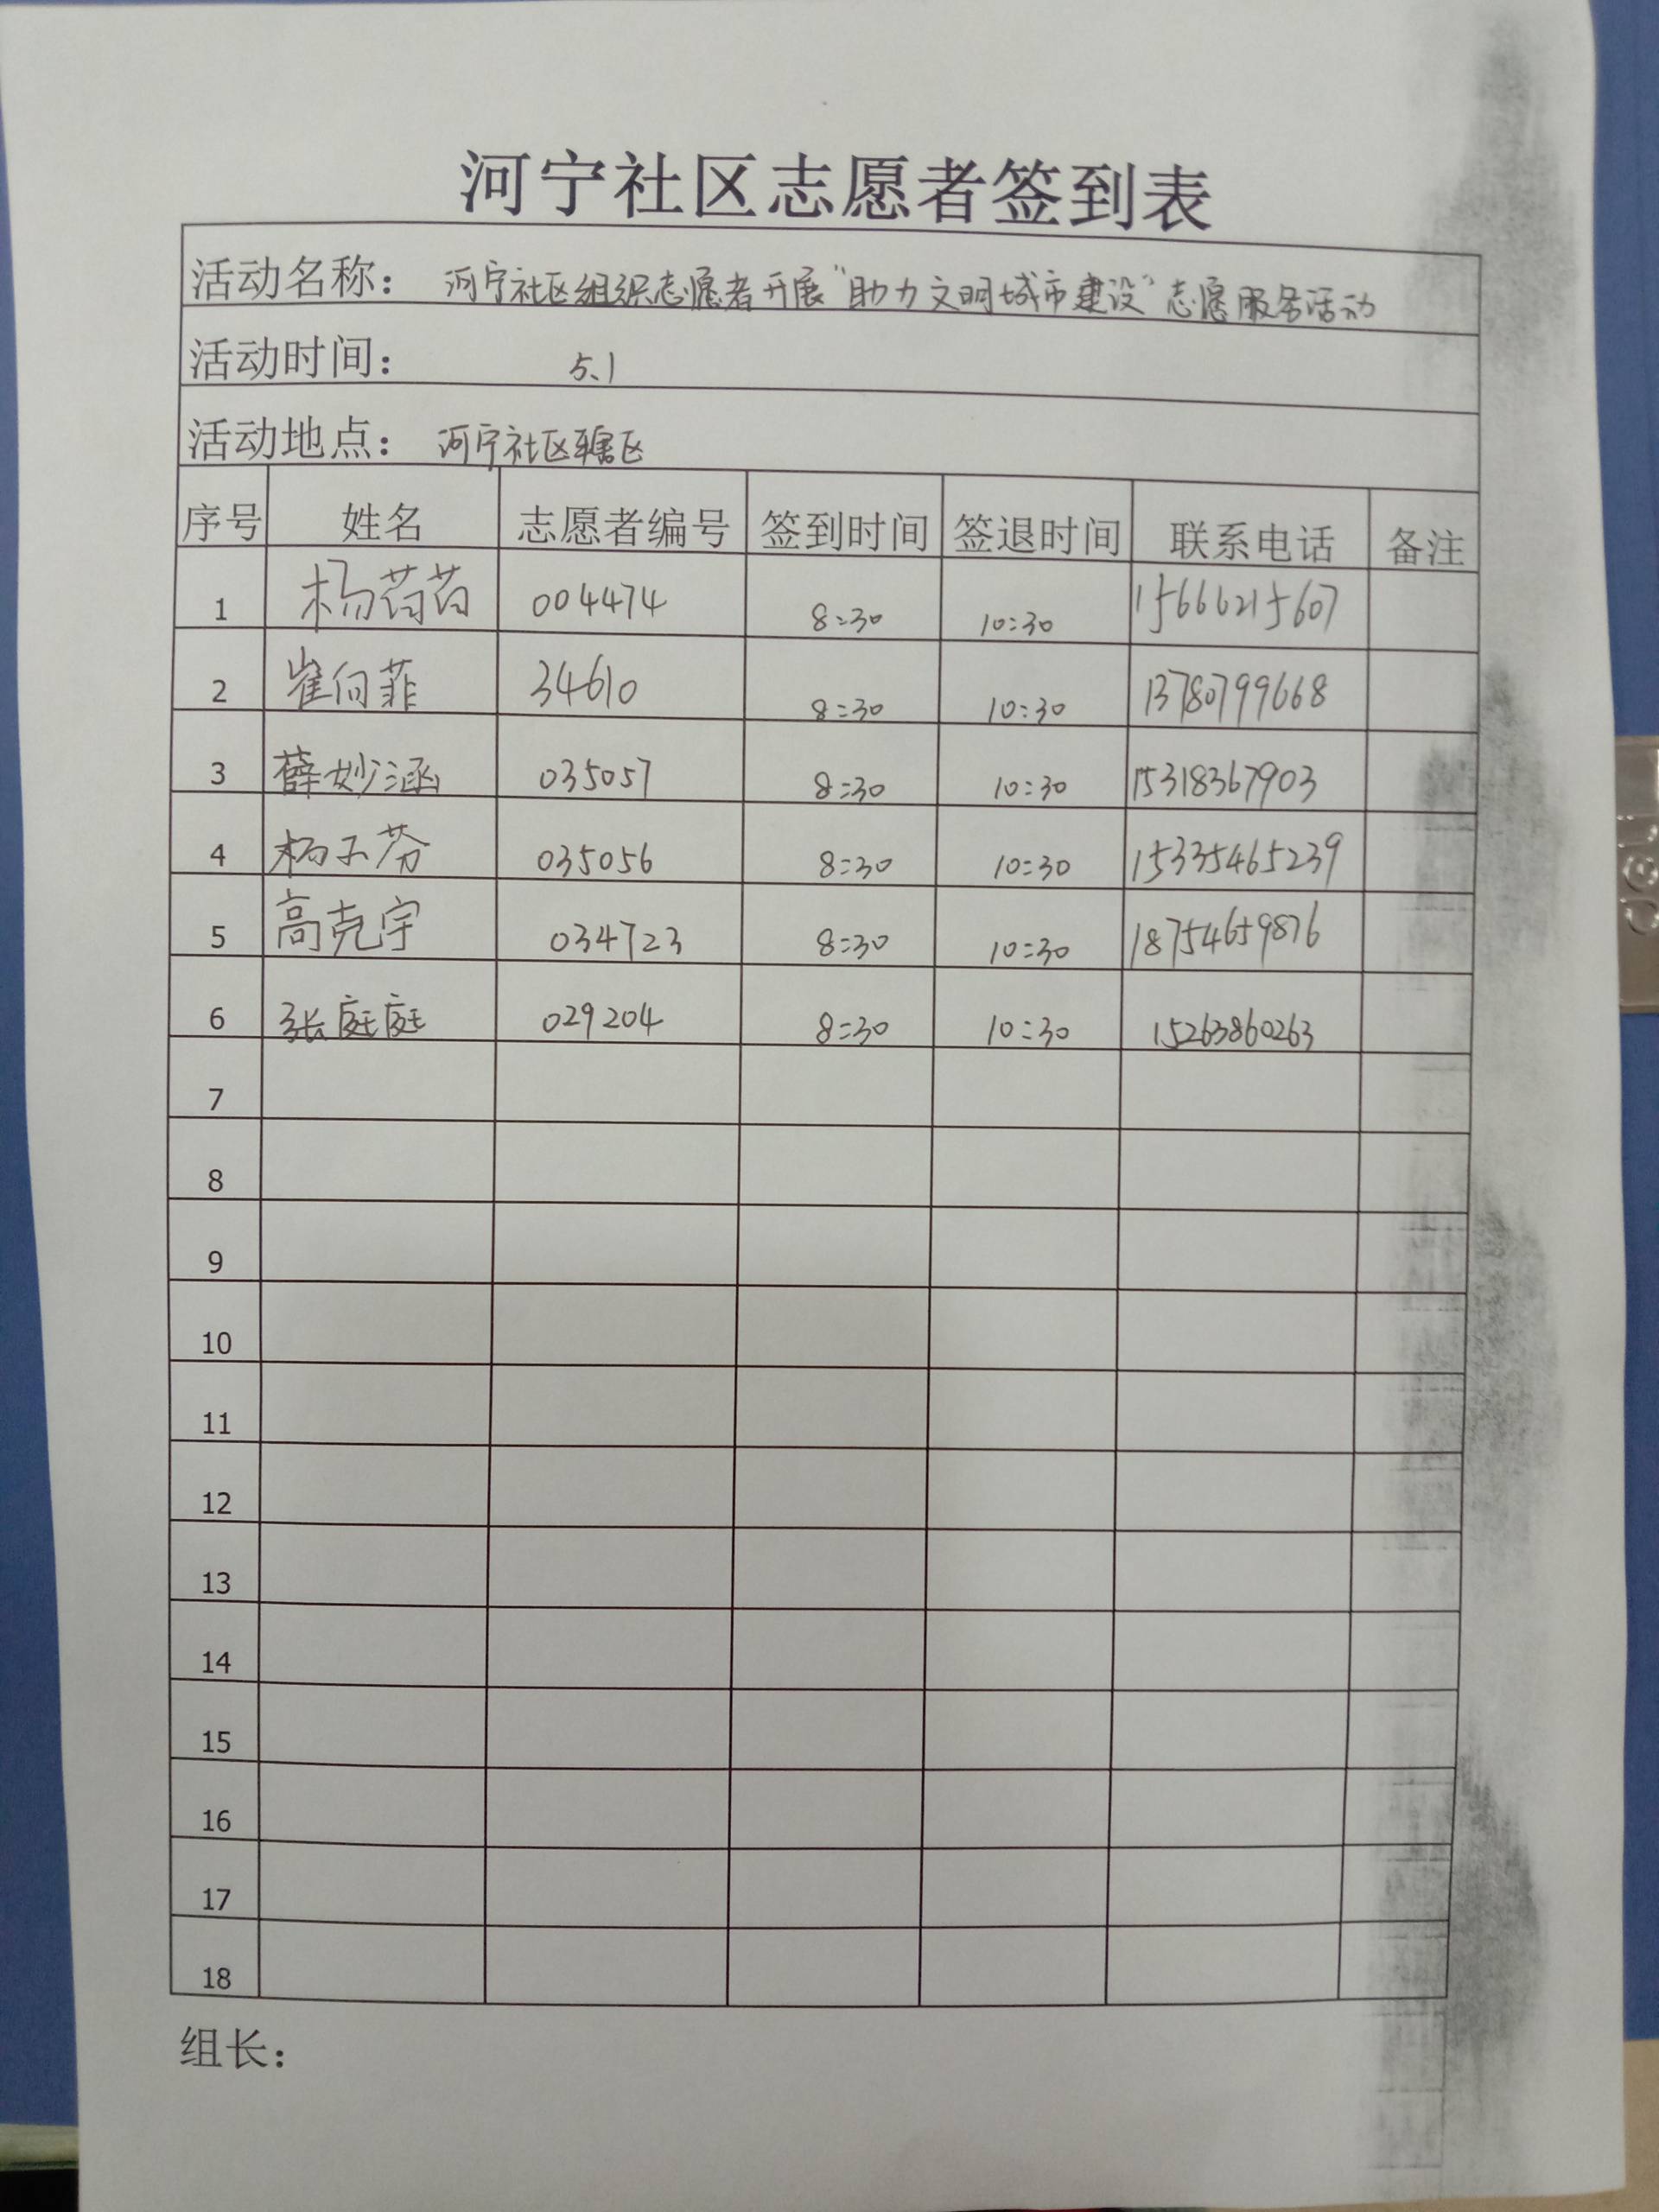 河宁社区志愿者签到表
活动名称： 河宁社区组织志愿者开展"助力文明城市建设"志愿服务活动
活动时间： 5.1
活动地点： 河宁社区辖区
序号 姓名 志愿者编号 签到时间 签退时间 联系电话 备注
1 杨茜茜 004474 8:30 10:30 15666215607
2 崔向菲 34610 8:30 10:30 13780799668
3 薛妙涵 035057 8:30 10:30 15318367903
4 杨子芬 035056 8:30 10:30 15335465239
5 高尧宇 034723 8:30 10:30 18754659876
6 张庭庭 029204 8:30 10:30 15263860263
7
8
9
10
11
12
13
14
15
16
17
18
组长：